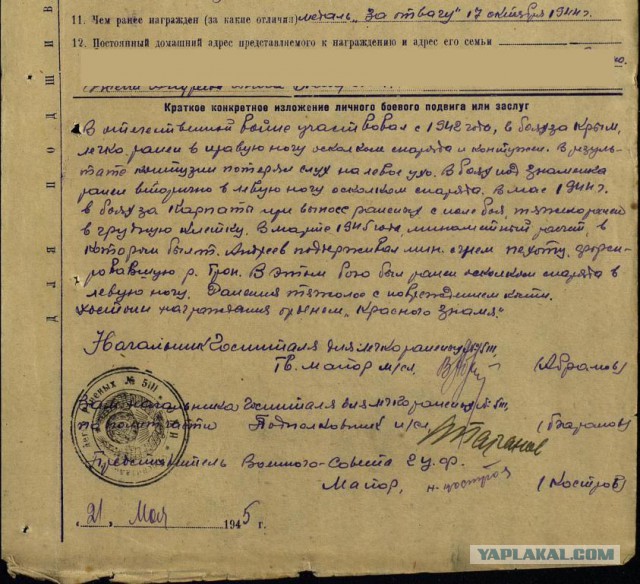 11. Чем ранее награжден (за какие отличия) медаль "За отвагу" 17 октября 1944г.
12. Постоянный домашний адрес представляемого к награждению и адрес его семьи
Краткое конкретное изложение личного боевого подвига или заслуг
В отечественной войне участвовал с 1942 года, в боях за Крым,
легко ранен в правую ногу осколком снаряда и контужен. В резуль-
тате контузии потерял слух на левое ухо. В боях под Знаменка
ранен вторично в левую ногу осколком снаряда. В мае 1944г.
в боях за Карпаты при выносе раненых с поле боя, тяжело ранен
в грудную клетку. В марте 1945 года, минометный расчет, в
котором был т. Андреев поддерживал мин. огнем пехоту, форси-
ровавшую р. Грон. В этом бою был ранен осколком снаряда в
левую ногу. Ранения тяжелое с повреждением кости.
Достоин награждения орденом "Красного знамя".
Начальник Госпиталя для легко раненых
Гв. майор м/сл. (Абрамов)
Зам. начальника Госпиталя для легко раненых
по политчасти Подполковник (Таранов)
Представитель Военного-Совета 2 у.ф.
Майор, (Костров)
"21" Мая 1945 г.
№ 5111
ДЛЯ ПОДШИВ
YAPLAKAL.COM